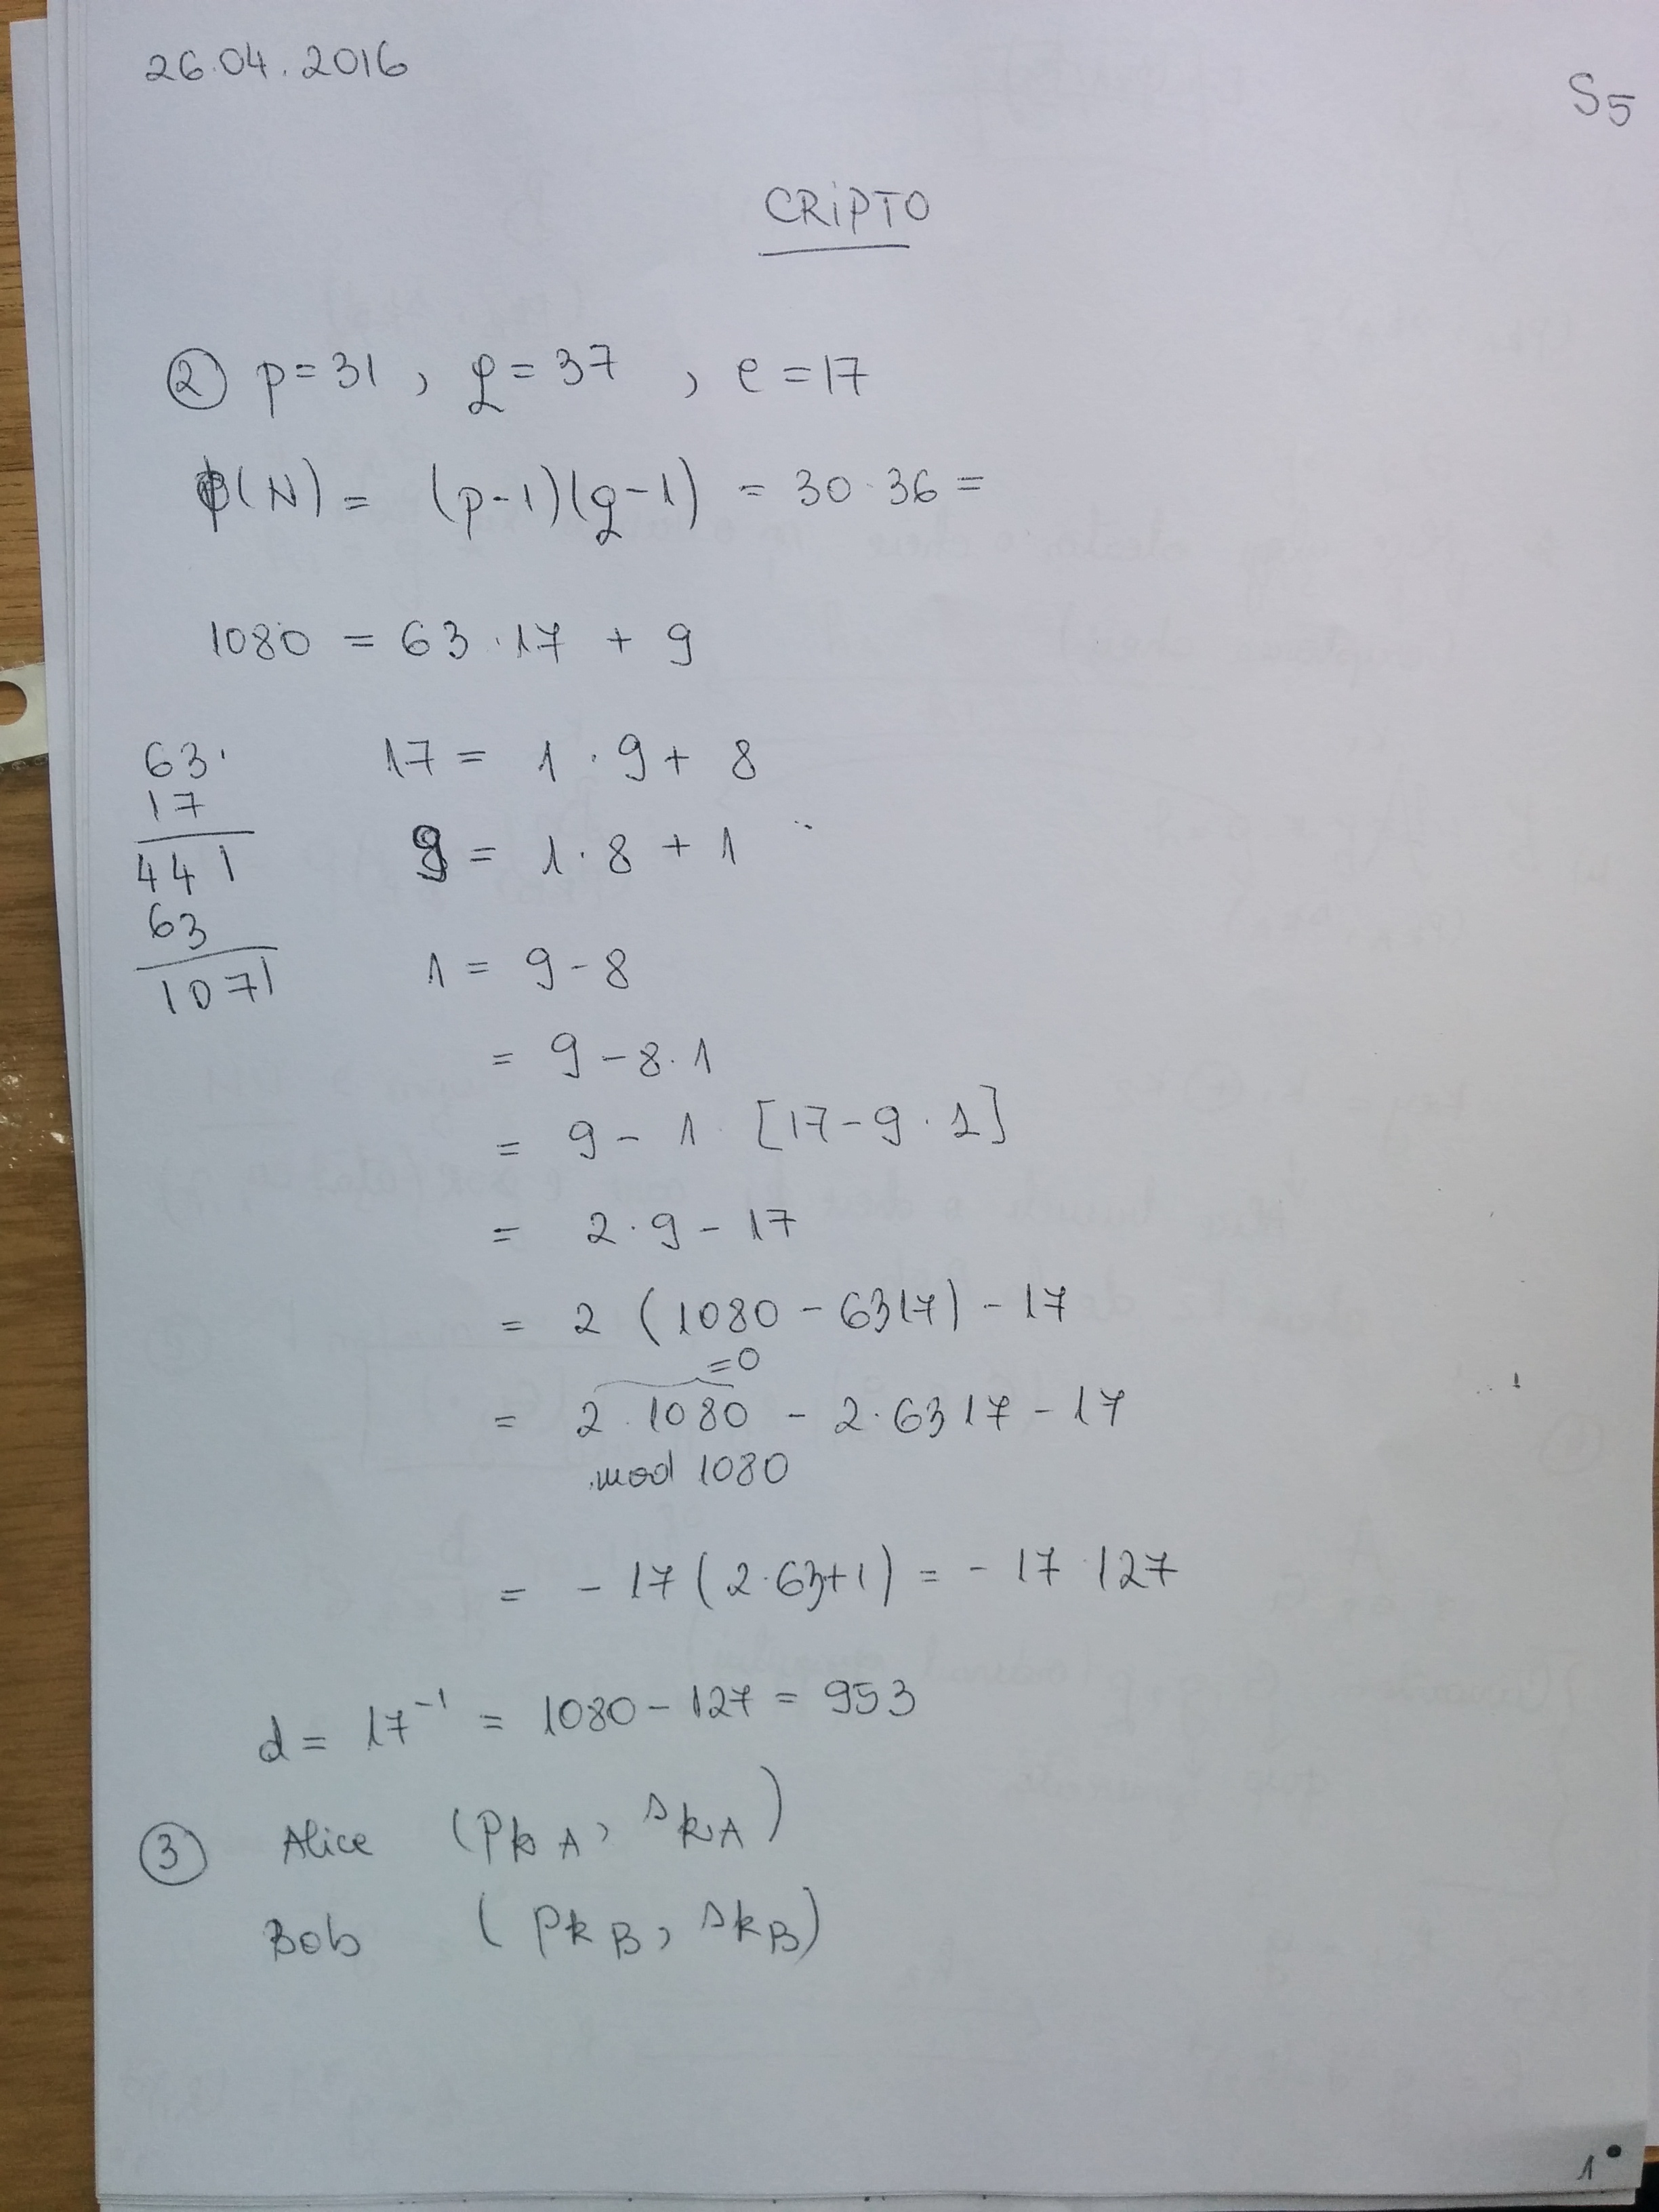 26.04.2016
S5
CRIPTO
② p=31, q=37, e=17
ϕ(N) = (p-1)(q-1) = 30·36 =
1080 = 63·17 + 9
63·
17
441
63
1071
17 = 1·9 + 8
9 = 1·8 + 1
1 = 9-8
= 9-8·1
= 9-1·[17-9·1]
= 2·9-17
= 2 (1080-6317)-17
=0
= 2·1080 - 2·6317-17
mod 1080
= -17(2·63+1) = -17·127
d = 17⁻¹ = 1080-127 = 953
③ Alice (PkA, skA)
Bob (PkB, skB)
1